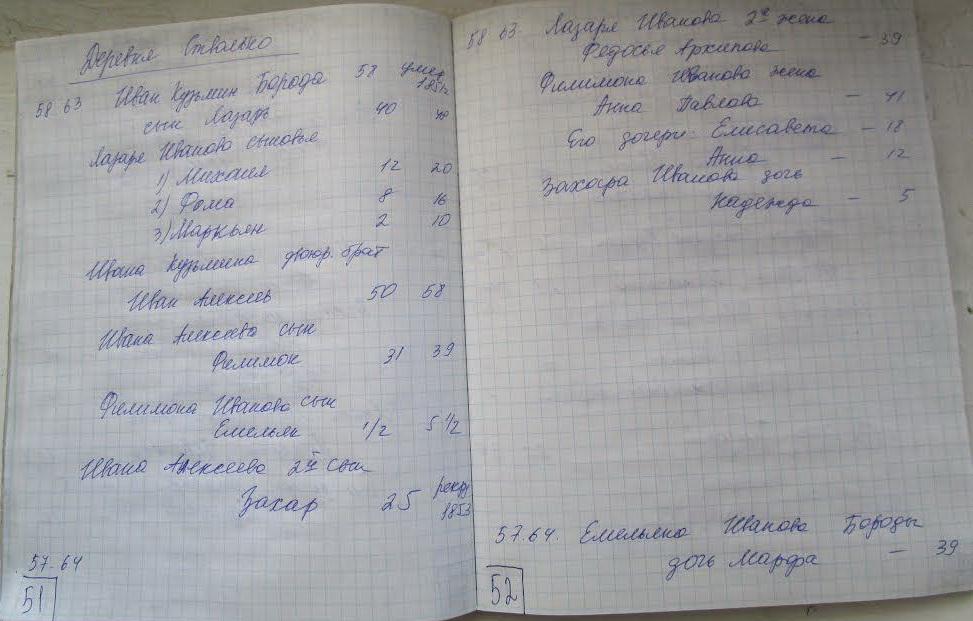 Деревня Стволыно
58 63 Иван Кузьмин Борода 58 умер 1851г
сын Лазарь 40 48
Лазаря Иванова сыновья
1) Михаил 12 20
2) Фома 8 16
3) Маркьян 2 10
Ивана Кузьмина двоюр. брат
Иван Алексеев 50 58
Ивана Алексеева сын
Филимон 31 39
Филимона Иванова сын
Емельян 1/2 8 1/2
Ивана Алексеева 2й сын
Захар 25 рекр 1853
57-64
51
58 63. Лазаря Иванова 2я жена
Федосья Архипова – 39
Филимона Иванова жена
Анна Павлова – 41
Его дочери: Елисавета – 18
Анна – 12
Захара Иванова дочь
Надежда – 5
57.64. Емельяна Иванова Бороды
дочь Марфа – 39
52